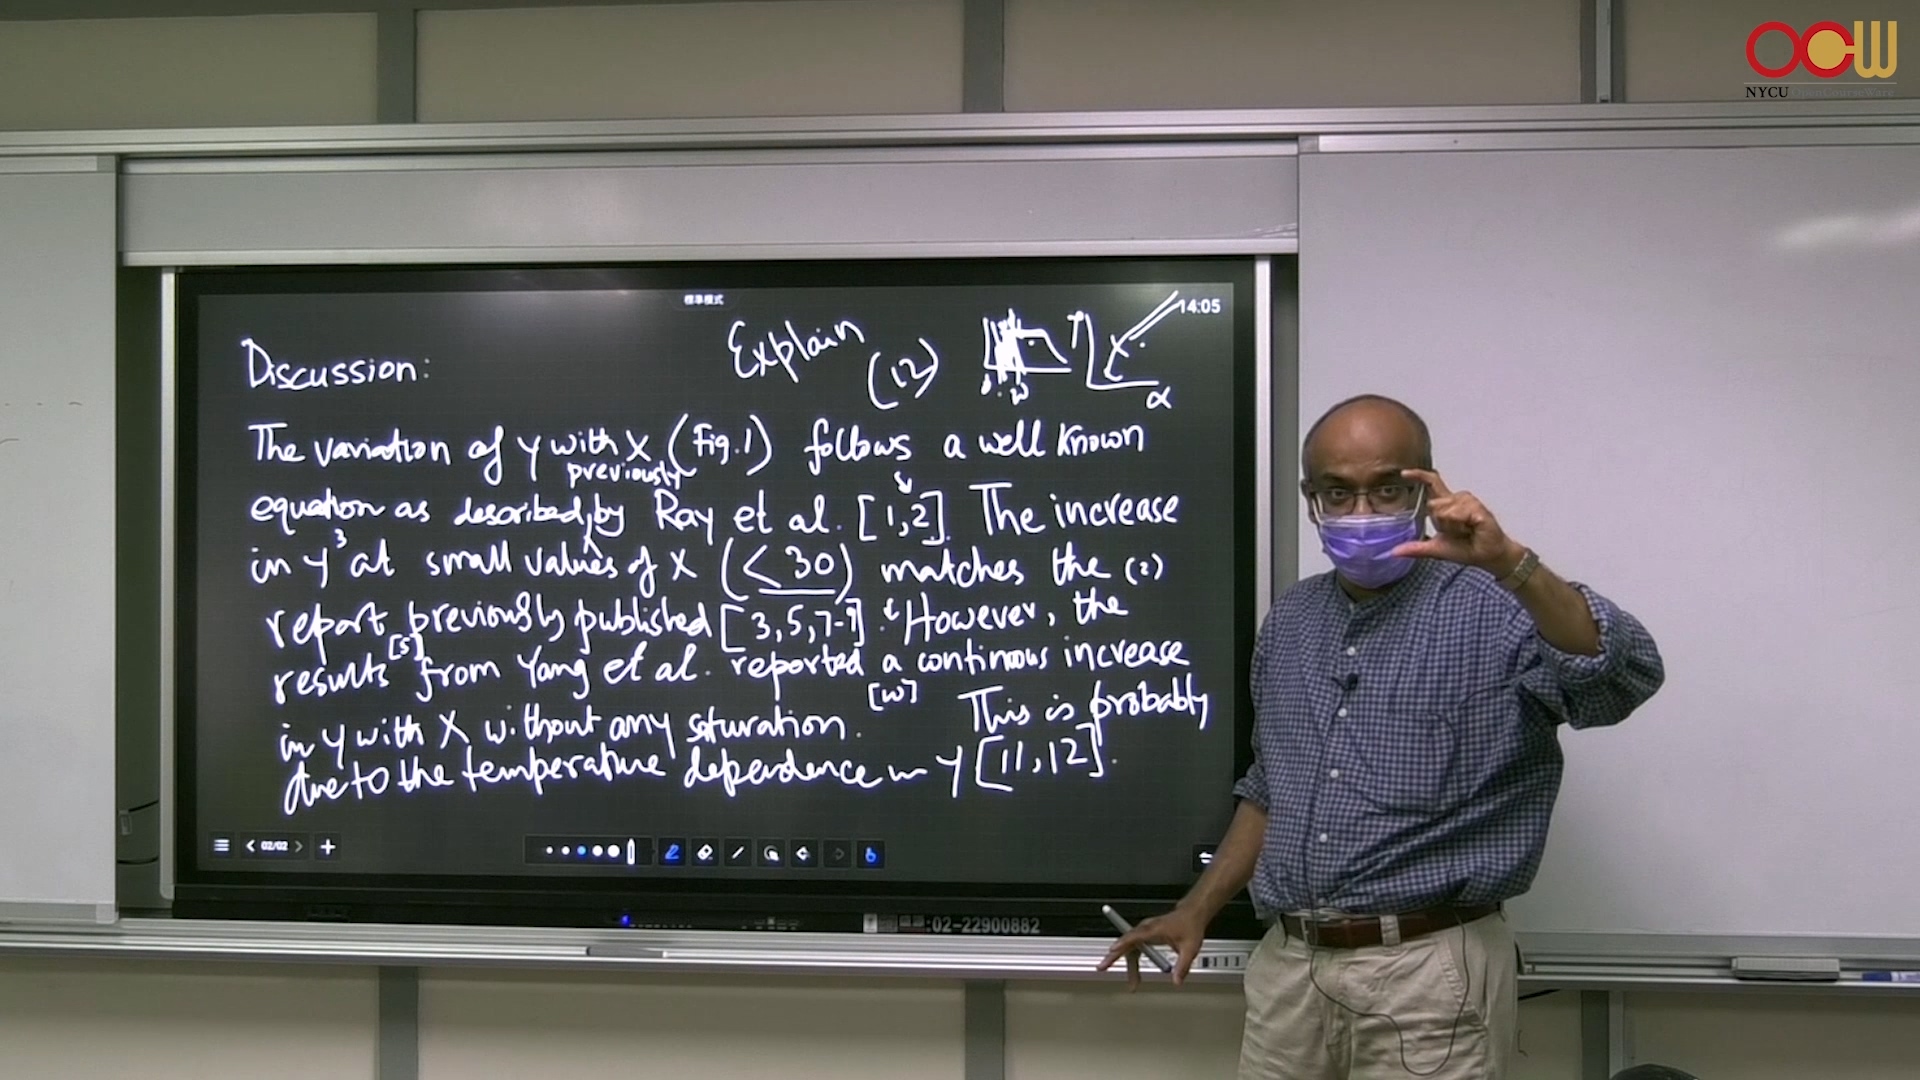 OCW
NYCU OpenCourseWare
標準模式
14:05
Explain
(12)
α
Discussion:
The variation of y with X (Fig.1) follows a well known
previously
equation as described by Ray et al. [1,2]. The increase
in y³ at small values of X (< 30) matches the (2)
report previously published [3,5,7-9]. However, the
[5]
results from Yang et al. reported a continous increase
[10]
in y with X without any saturation. This is probably
due to the temperature dependence in y [11,12].
02/02
:02-22900882